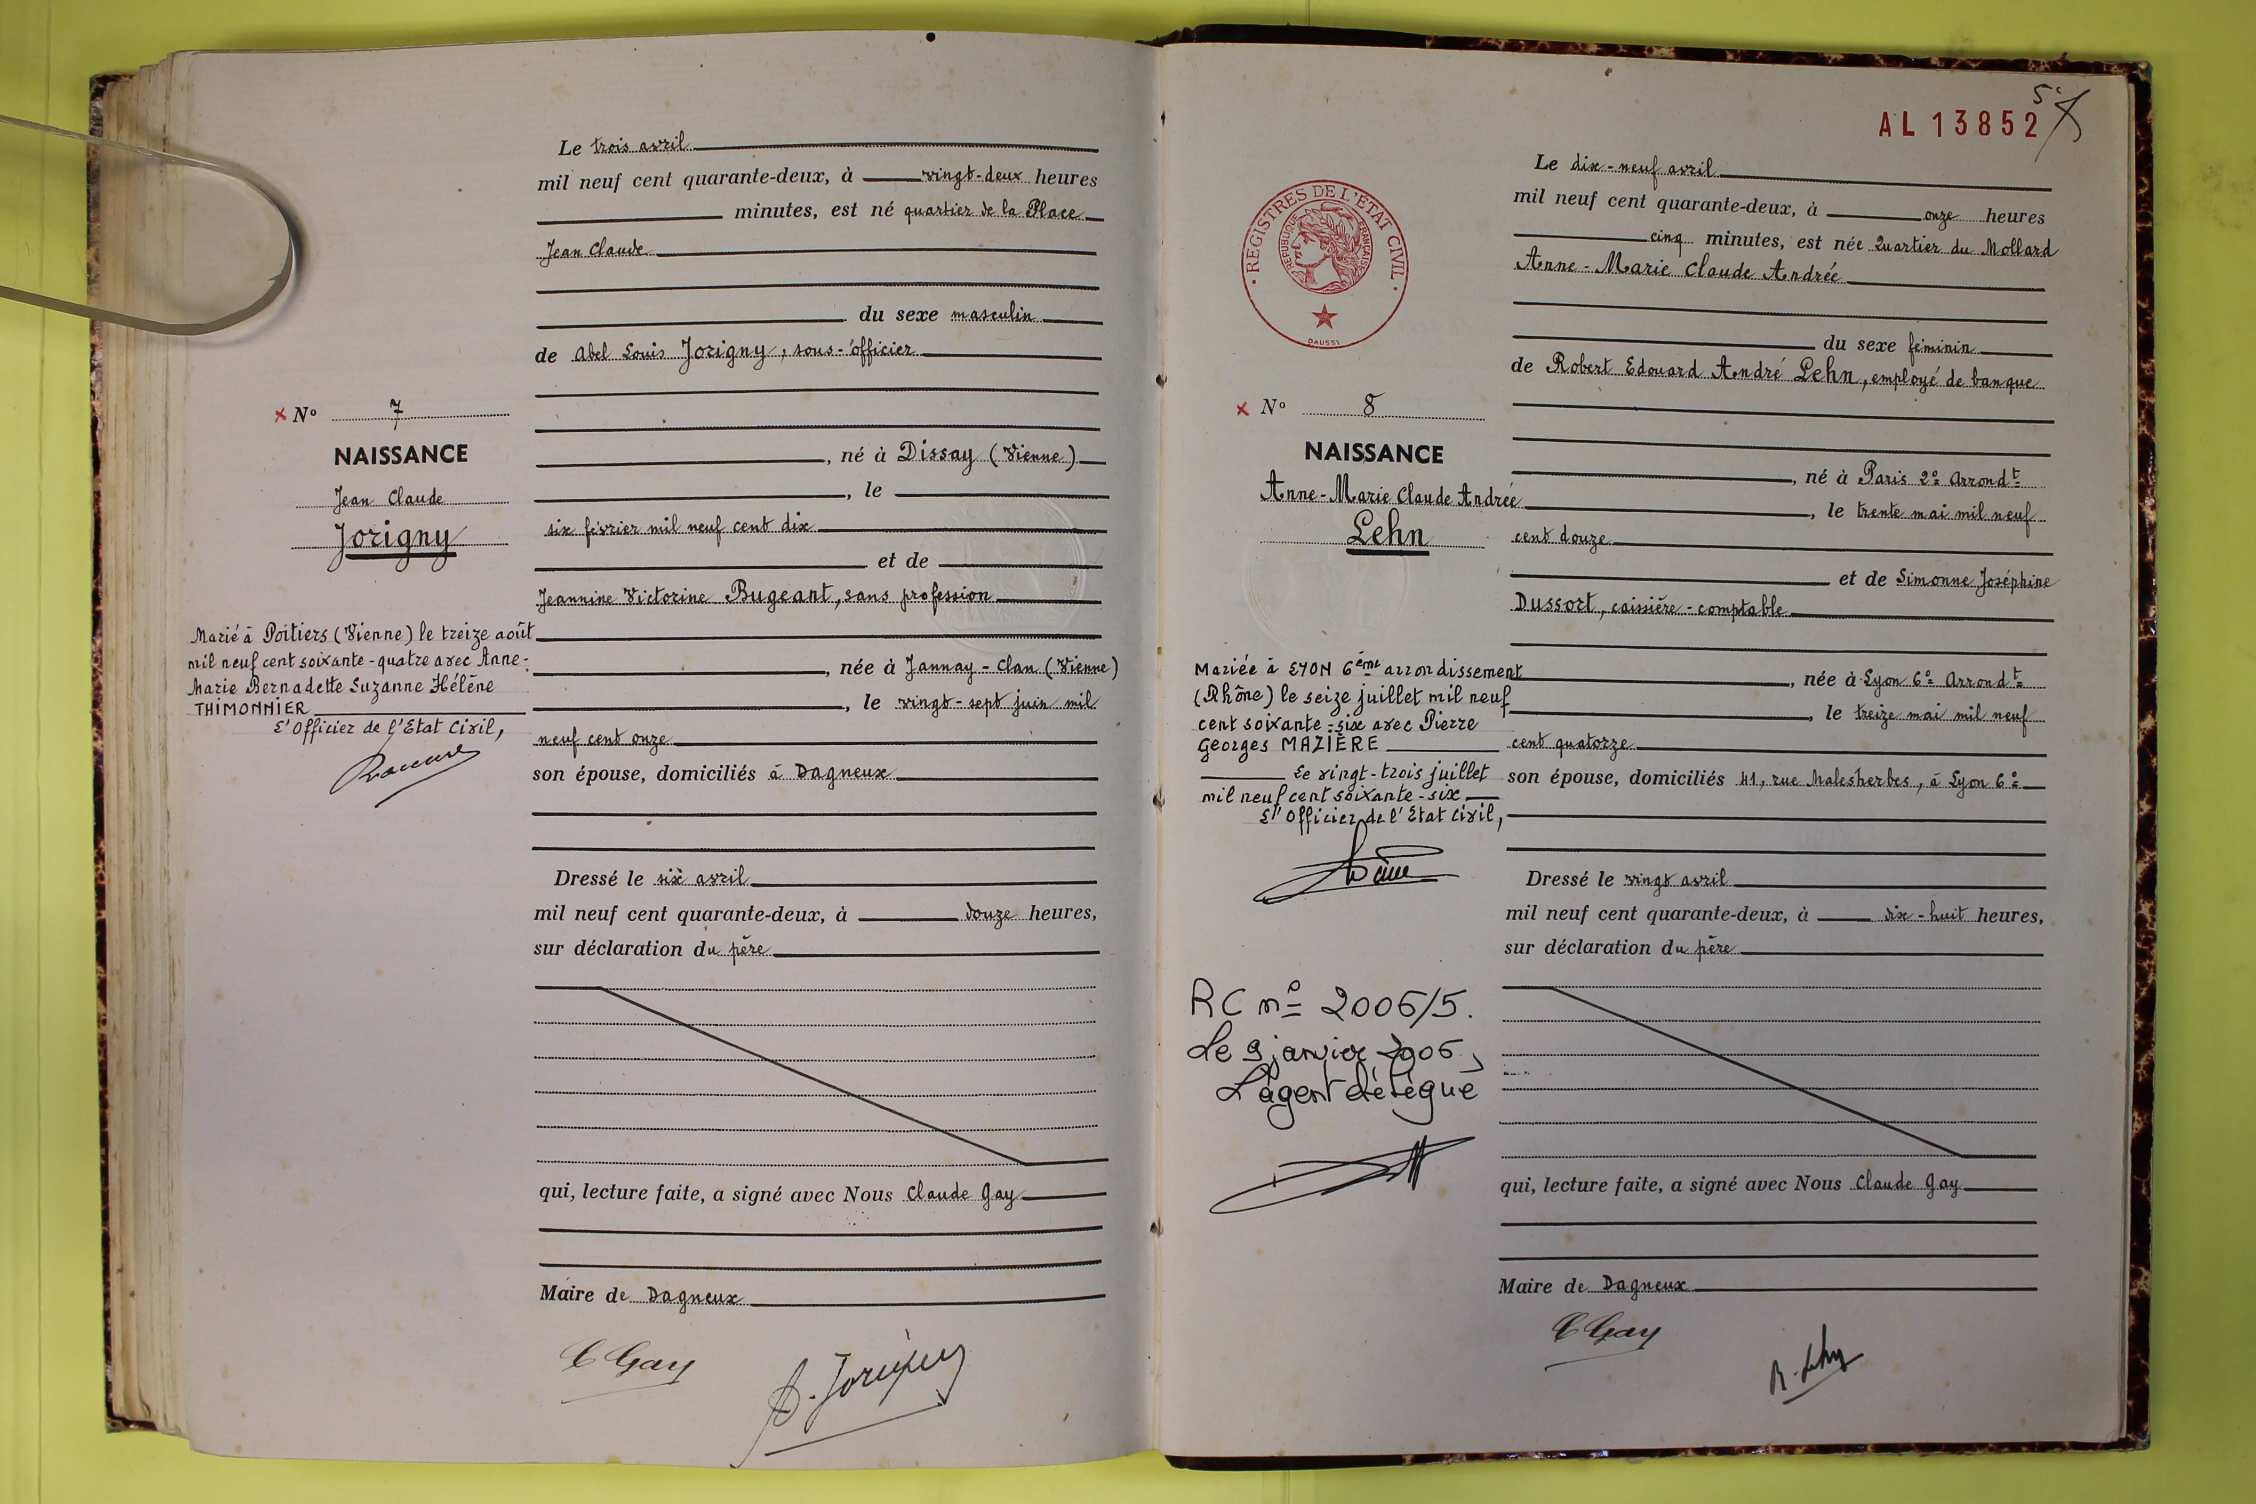 Le trois avril
mil neuf cent quarante-deux, à vingt-deux heures
minutes, est né quartier de la Place
Jean Claude
du sexe masculin
de Abel Louis Jorigny, sous-officier
× Nº 7
NAISSANCE
Jean Claude
Jorigny
né à Dissay (Vienne)
, le
six février mil neuf cent dix
et de
Jeannine Victorine Bugeant, sans profession
, née à Jaunay-Clan (Vienne)
, le vingt-sept juin mil
neuf cent onze
son épouse, domiciliés à Dagneux
Marié à Poitiers (Vienne) le treize août
mil neuf cent soixante-quatre avec Anne-
Marie Bernadette Suzanne Hélène
THIMONNIER
L'Officier de l'Etat Civil,
Dressé le six avril
mil neuf cent quarante-deux, à douze heures,
sur déclaration du père
qui, lecture faite, a signé avec Nous Claude Gay
Maire de Dagneux
C Gay
A. Jorigny
5e
AL 13852
Le dix-neuf avril
mil neuf cent quarante-deux, à onze heures
cinq minutes, est née Quartier du Mollard
Anne-Marie Claude Andrée
REGISTRES DE L'ETAT CIVIL
REPUBLIQUE FRANÇAISE
DAUSSI
du sexe féminin
de Robert Edouard André Lehn, employé de banque
× Nº 8
NAISSANCE
Anne-Marie Claude Andrée
Lehn
, né à Paris 2e Arrondt
, le trente mai mil neuf
cent douze
et de Simonne Joséphine
Dussort, caissière-comptable
, née à Lyon 6e Arrondt
, le treize mai mil neuf
cent quatorze
son épouse, domiciliés 41, rue Malesherbes, à Lyon 6e
Mariée à LYON 6ème arrondissement
(Rhône) le seize juillet mil neuf
cent soixante-six avec Pierre
Georges MAZIÈRE
Le vingt-trois juillet
mil neuf cent soixante-six
L'Officier de l'Etat Civil,
Dressé le vingt avril
mil neuf cent quarante-deux, à dix-huit heures,
sur déclaration du père
RC nº 2006/5.
Le 9 janvier 2006,
L'agent délégué
qui, lecture faite, a signé avec Nous Claude Gay
Maire de Dagneux
C Gay
R. Lehn